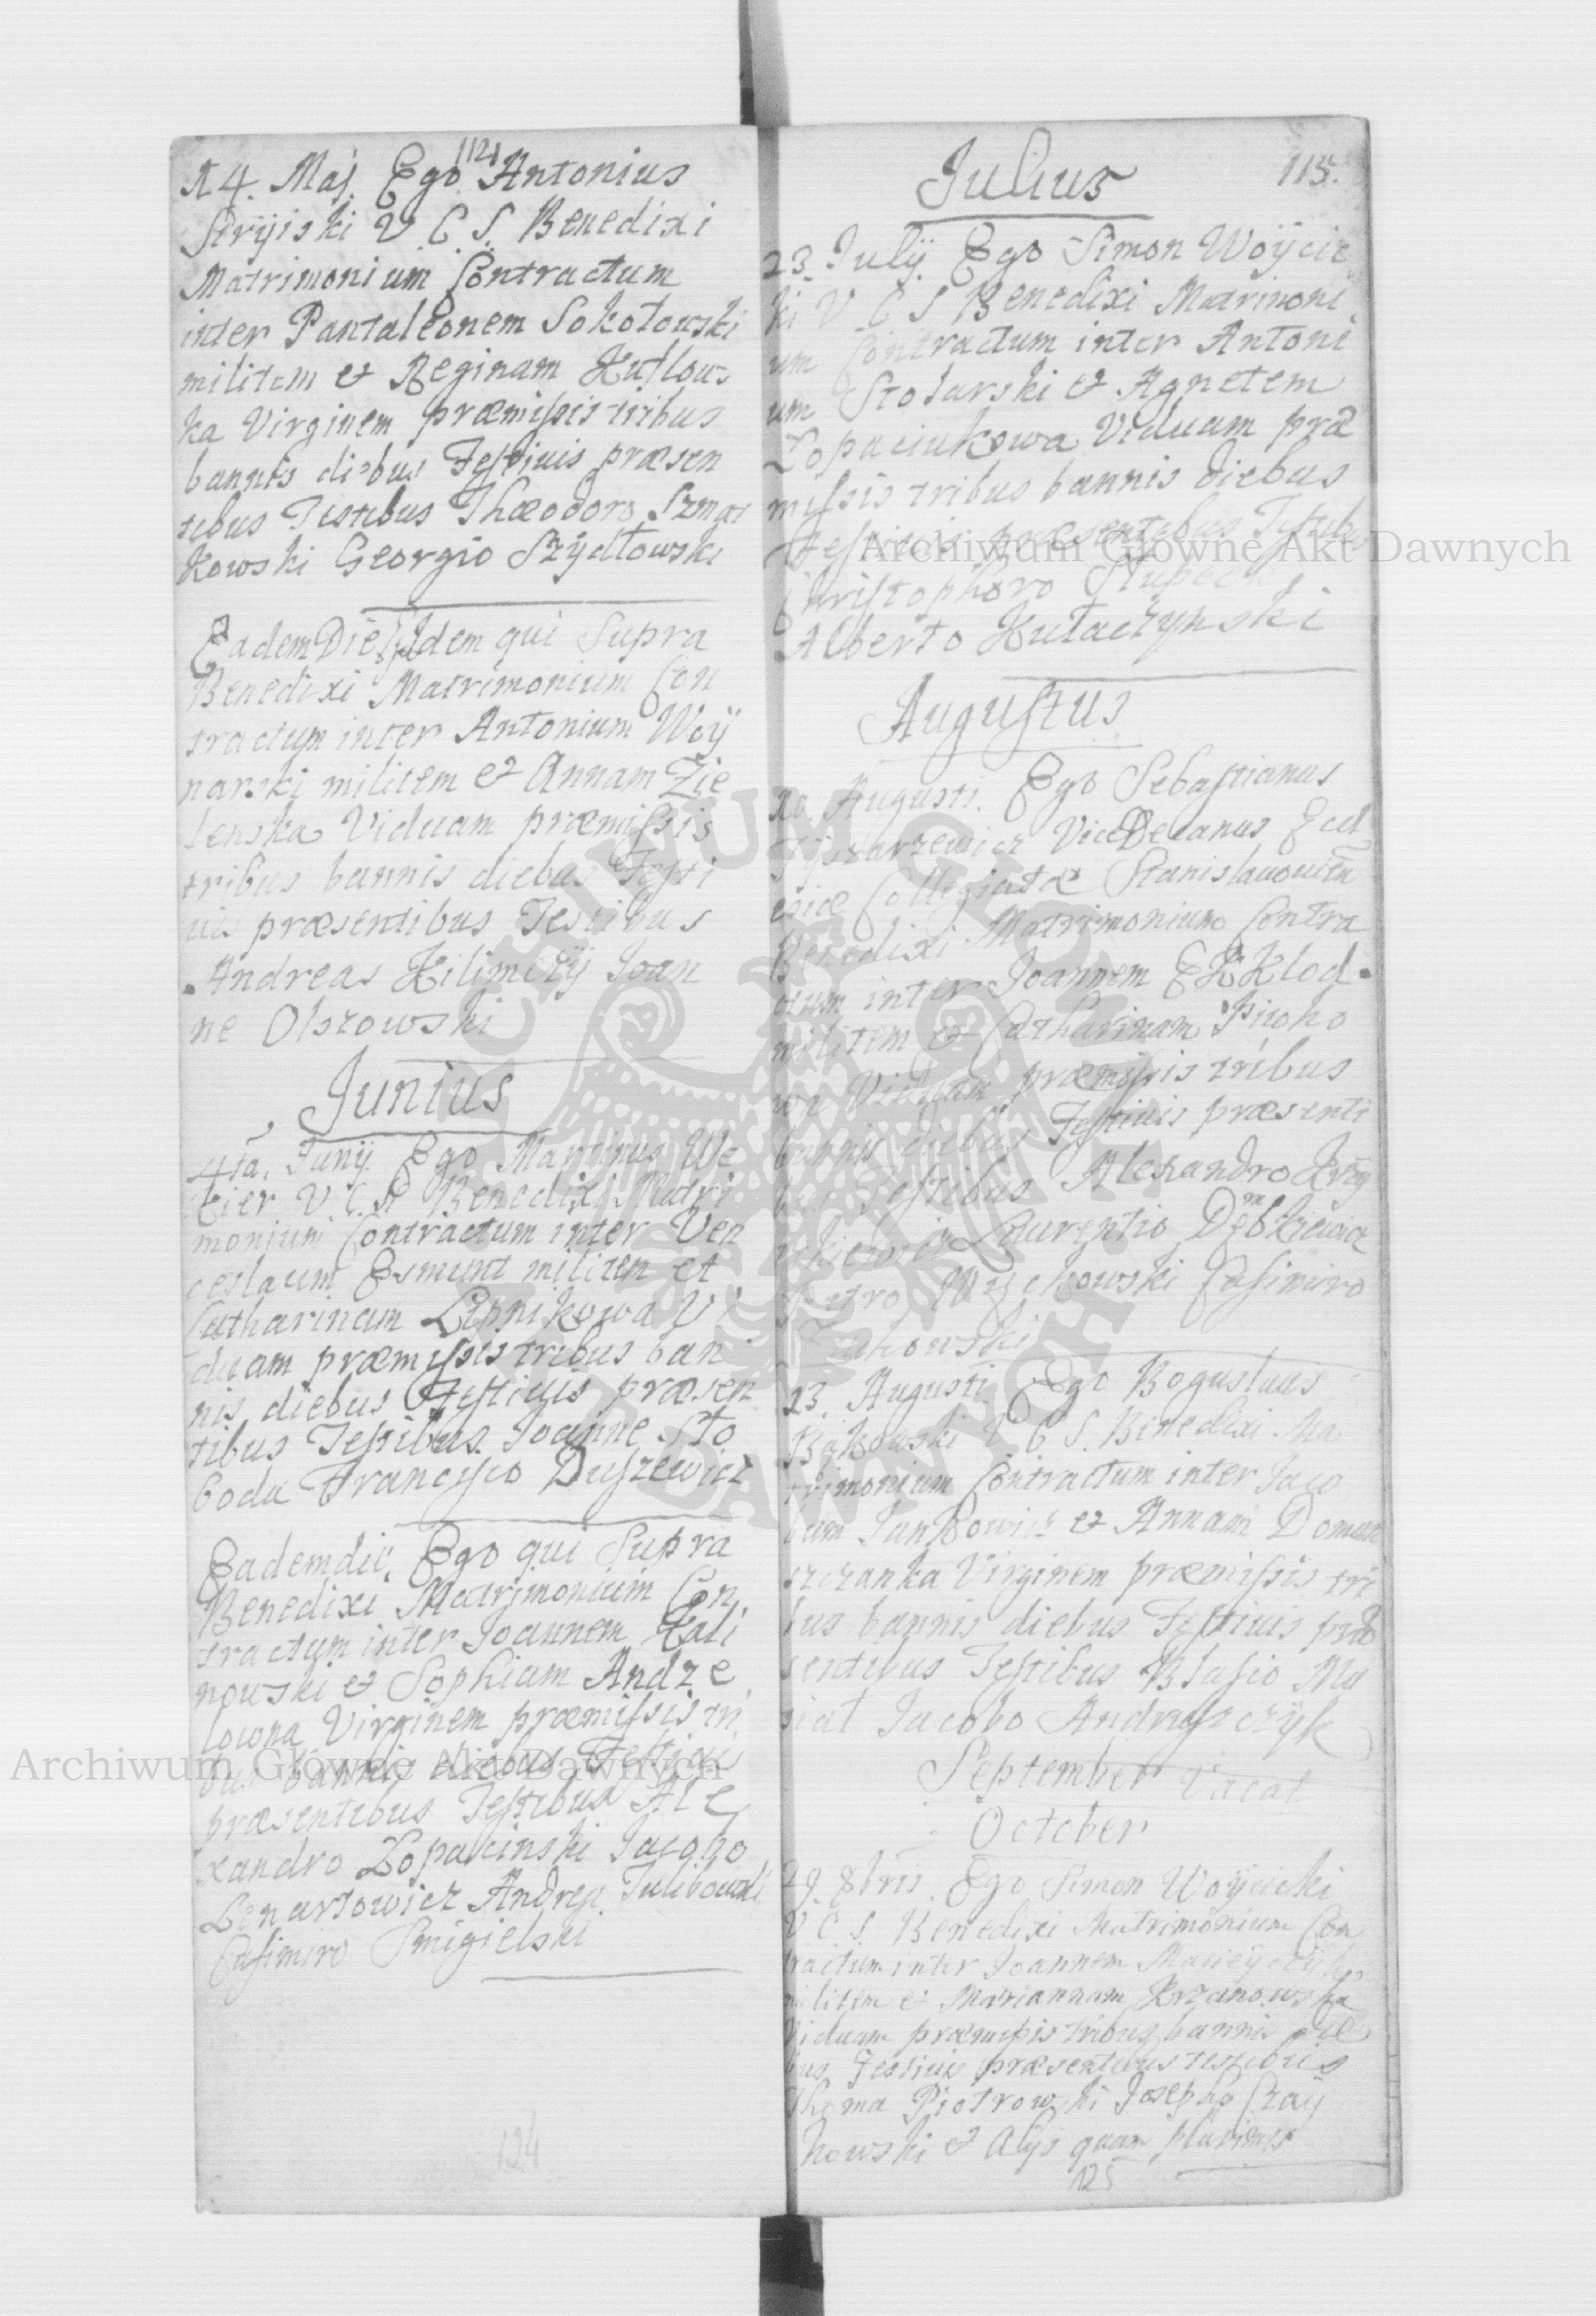 112
14. Maj. Ego Antonius
Stryiski V. C. S. Benedixi
Matrimonium Contractum
inter Pantaleonem Sokołowski
militem et Reginam Kutlows
ka Virginem præmissis tribus
bannis diebus Festiuis præsen
tibus Testibus Thæodoro Szmat
kowski Georgio Szydłowski
Eadem Die Idem qui Supra
Benedixi Matrimonium Con
tractum inter Antonium Woÿ
narski militem et Annam Zie
lenska Viduam præmissis
tribus bannis diebus Festi
uis præsentibus Testibus
Andreas Joan
ne Olszowski
Junius
4ta. Junij. Ego Martinus We
V. C. S. Benedixi Matri
monium Contractum inter Ven
ceslaum Esmunt militem et
Catharinam Lipnikowa Vi
duam præmissis tribus ban
nis diebus Festiuis præsen
tibus Testibus Joanne Sło
boda Francisco Duszewicz
Eadem die. Ego qui Supra
Benedixi Matrimonium Con
tractum inter Joannem Kali
nowski et Sophiam Andze
lowna Virginem præmissis tri
bus bannis diebus Festiuis
præsentibus Testibus Ale
xandro Łopacinski Jacobo
Lenartowicz Andrea
Casimiro Smigielski
124
Julius
115.
23. Julij. Ego Simon Woÿcic
ki V C S Benedixi Matrimoni
um Contractum inter Antoni
um Stolarski et Agnetem
Łopaciukowa Viduam præ
missis tribus bannis diebus
Festiuis præsentibus Testibus
Christophoro
Alberto Kułaczynski
Augustus
10. Augusti. Ego Sebastianus
ViceDecanus Eccl
esiæ Collegiatæ Stanislauouien
Benedixi Matrimonium Contra
ctum inter Joannem
militem et Catharinam Piroho
wa Viduam præmissis tribus
bannis diebus Festiuis præsenti
bus Testibus Alexandro
Laurentio
Petro Casimiro
23. Augusti Ego Boguslaus
Bąkowski V C S. Benedixi Ma
trimonium Contractum inter Jaco
bum Jankowicz et Annam Doman
szczanka Virginem præmissis tri
bus bannis diebus Festiuis præ
sentibus Testibus Blasio Mu
siał Jacobo Andraszczÿk
September Vacat
October
29. 8bris. Ego Simon Woÿcicki
V C S Benedixi Matrimonium Con
tractum inter Joannem
militem et Mariannam Krzanowska
Viduam præmissis tribus bannis die
bus Festiuis præsentibus testibus
Thoma Piotrowski Josepho Czaÿ
kowski et Alijs quam plurimis
125
Archiwum Główne Akt Dawnych
Archiwum Główne Akt Dawnych
ARCHIWUM GŁÓWNE AKT DAWNYCH